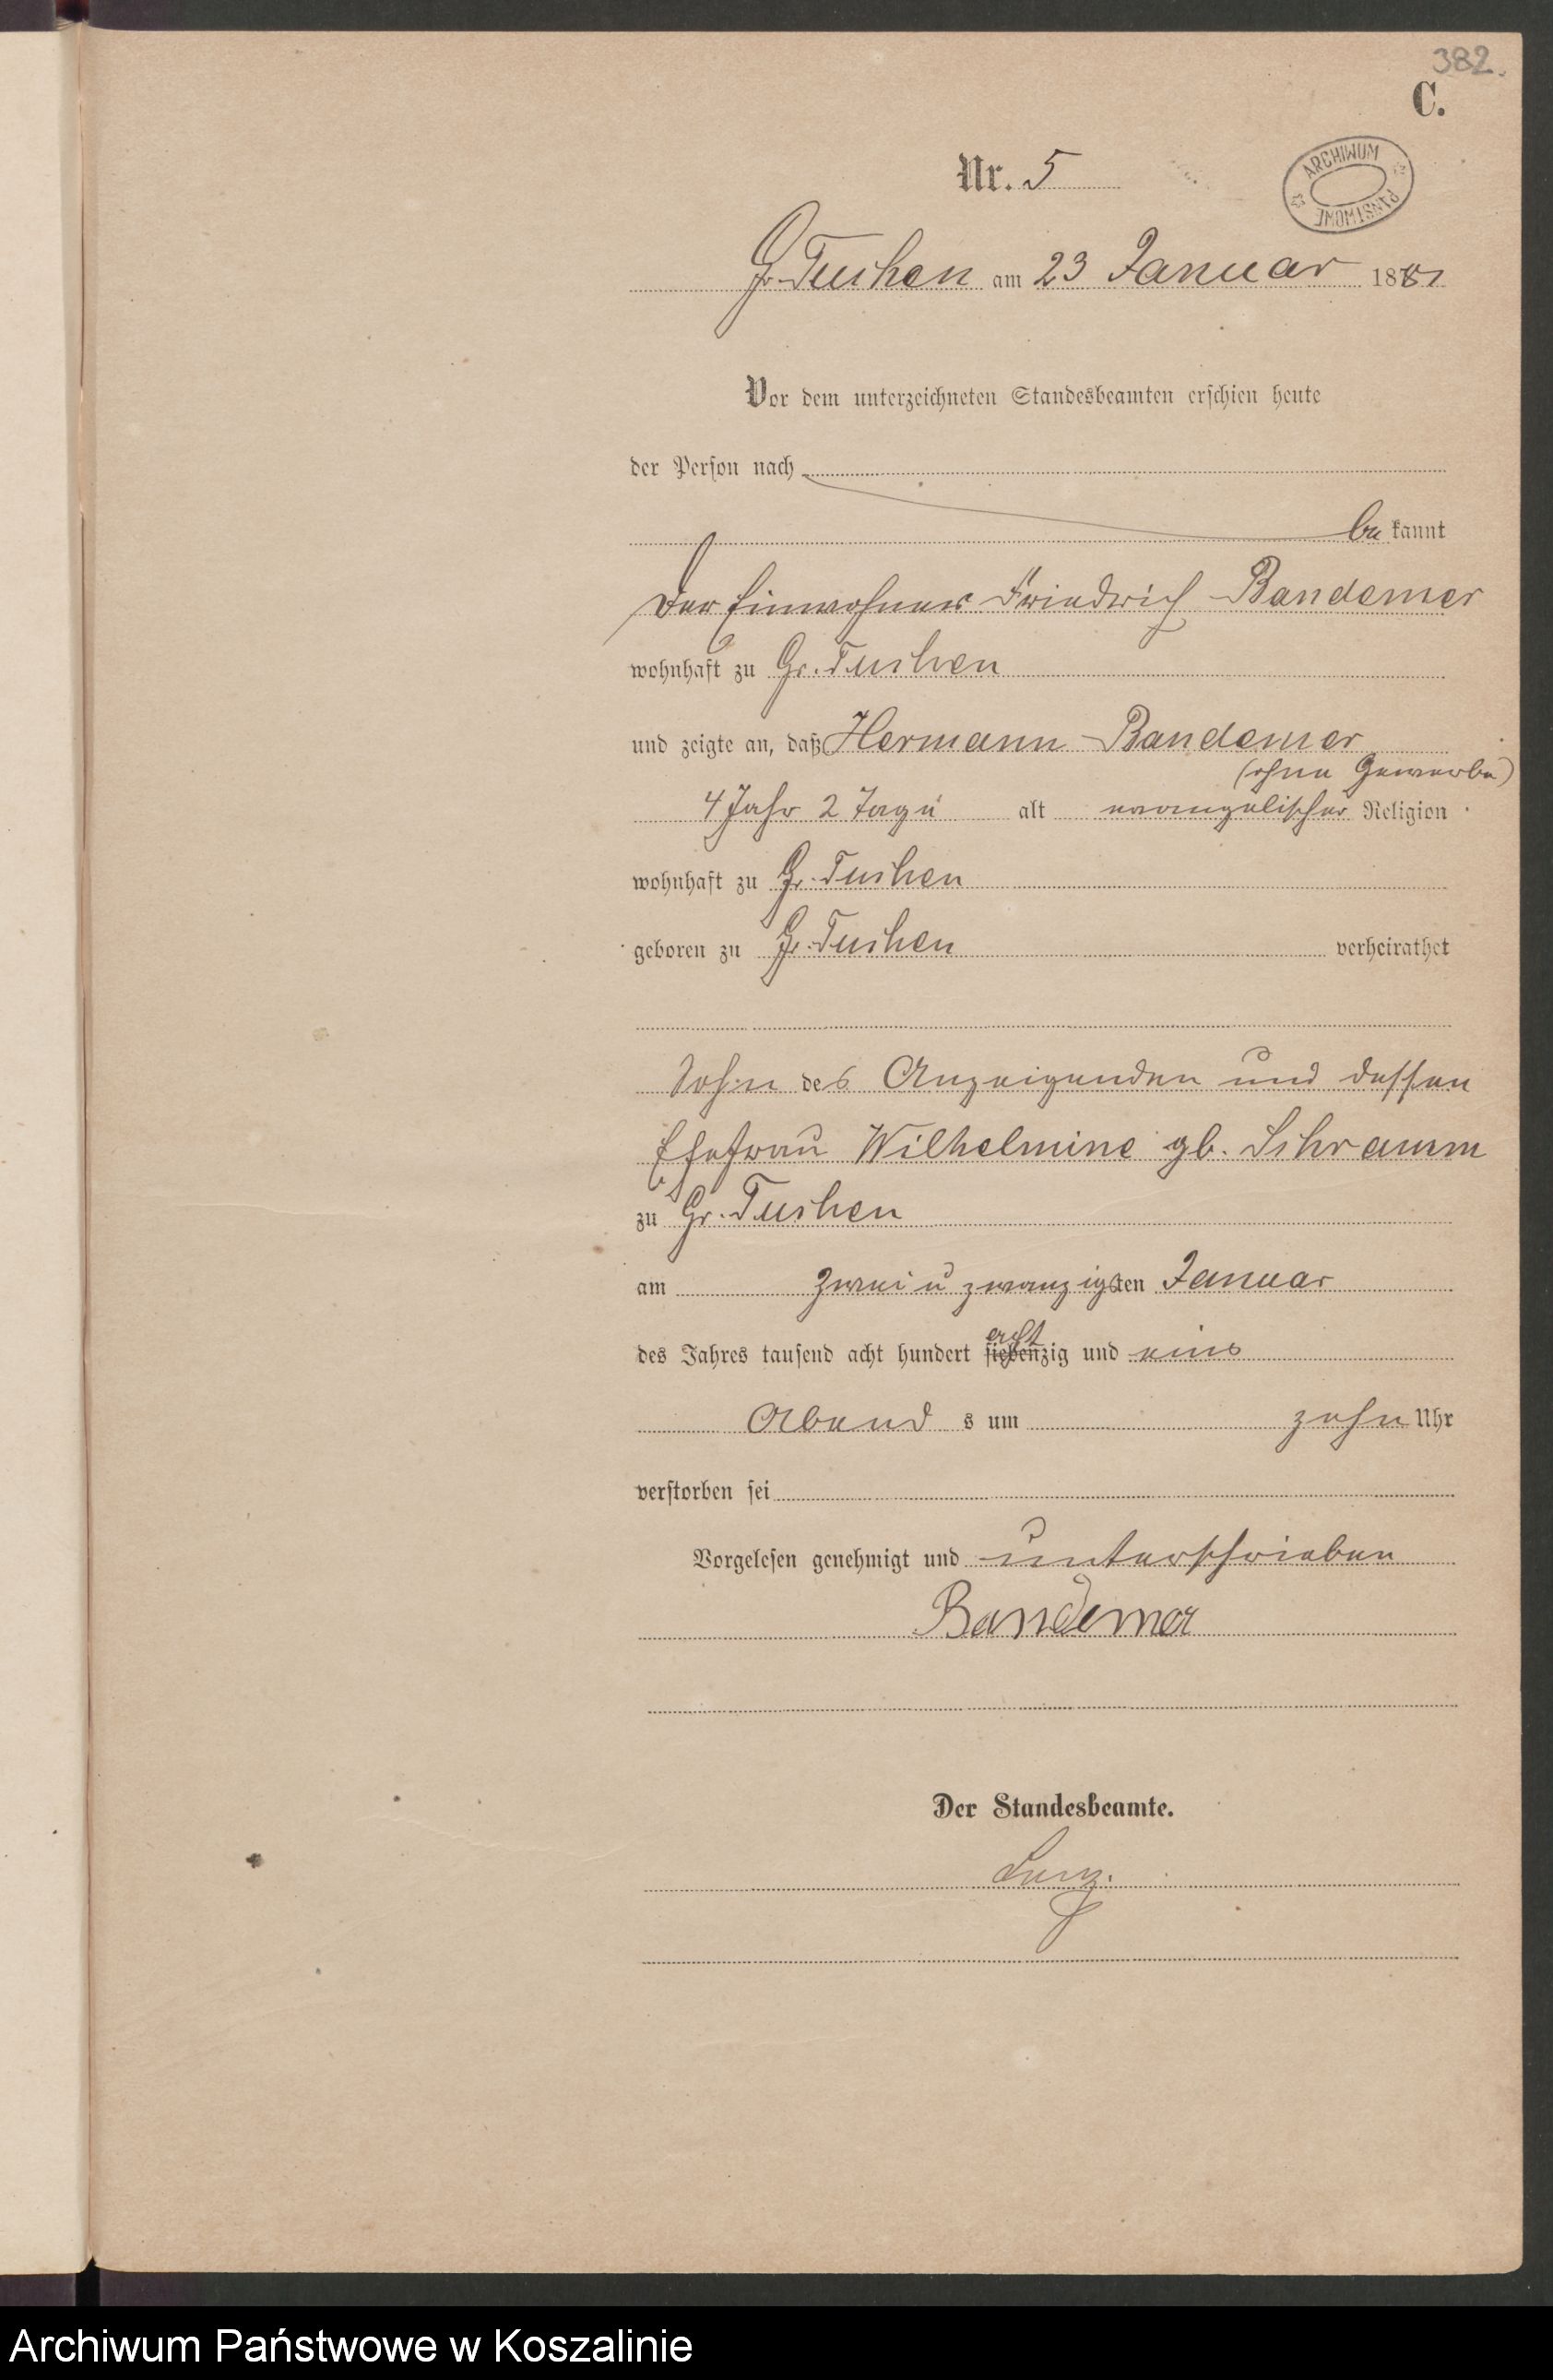 382.
C.
ARCHIWUM PAŃSTWOWE
Nr. 5
Gr. Tuchen am 23 Januar 1881
Vor dem unterzeichneten Standesbeamten erschien heute
der Person nach
be kannt
Der Einwohner Friedrich Bandemer
wohnhaft zu Gr. Tuchen
und zeigte an, daß Hermann Bandemer
(ohne Gewerbe)
4 Jahr 2 Tage alt evangelischer Religion
wohnhaft zu Gr. Tuchen
geboren zu Gr. Tuchen verheirathet
Sohn des Anzeigenden und dessen
Ehefrau Wilhelmine gb. Schramm
zu Gr. Tuchen
am zwei u zwanzigsten Januar
des Jahres tausend acht hundert siebenzig acht und eins
Abend s um zehn Uhr
verstorben sei
Vorgelesen genehmigt und unterschrieben
Bandemer
Der Standesbeamte.
Archiwum Państwowe w Koszalinie